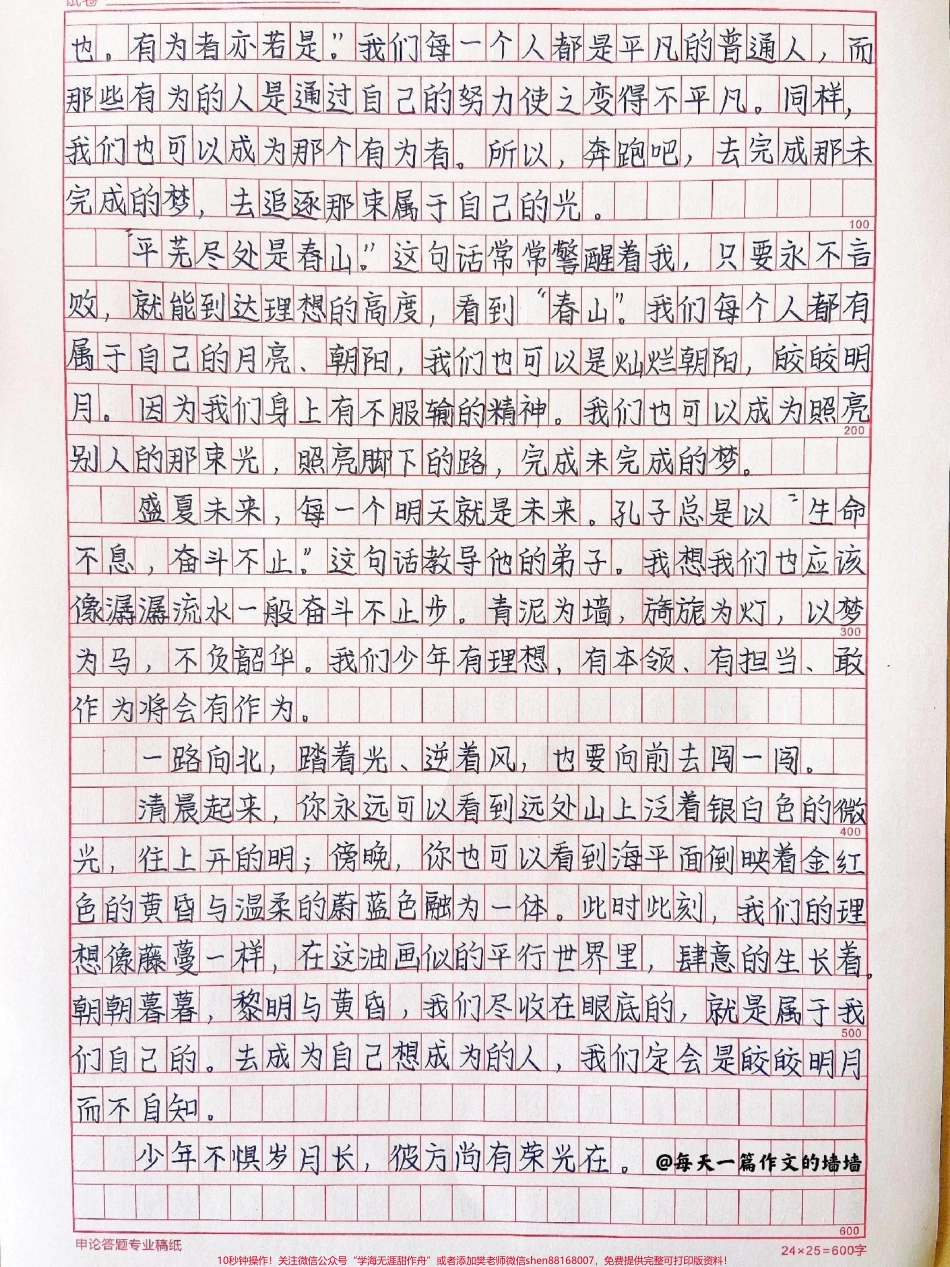 也。有为者亦若是。”我们每一个人都是平凡的普通人，而
那些有为的人是通过自己的努力使之变得不平凡。同样，
我们也可以成为那个有为者。所以，奔跑吧，去完成那未
完成的梦，去追逐那束属于自己的光。
100
“平芜尽处是春山。”这句话常常警醒着我，只要永不言
败，就能到达理想的高度，看到“春山”。我们每个人都有
属于自己的月亮、朝阳，我们也可以是灿烂朝阳，皎皎明
月。因为我们身上有不服输的精神。我们也可以成为照亮
200
别人的那束光，照亮脚下的路，完成未完成的梦。
盛夏未来，每一个明天就是未来。孔子总是以“生命
不息，奋斗不止。”这句话教导他的弟子。我想我们也应该
像潺潺流水一般奋斗不止步。青泥为墙，旖旎为灯，以梦
300
为马，不负韶华。我们少年有理想，有本领、有担当、敢
作为将会有作为。
一路向北，踏着光、逆着风，也要向前去闯一闯。
清晨起来，你永远可以看到远处山上泛着银白色的微
400
光，往上开的明；傍晚，你也可以看到海平面倒映着金红
色的黄昏与温柔的蔚蓝色融为一体。此时此刻，我们的理
想像藤蔓一样，在这油画似的平行世界里，肆意的生长着。
朝朝暮暮，黎明与黄昏，我们尽收在眼底的，就是属于我
500
们自己的。去成为自己想成为的人，我们定会是皎皎明月
而不自知。
少年不惧岁月长，彼方尚有荣光在。 @每天一篇作文的墙墙
600
申论答题专业稿纸 24×25=600字
10秒钟操作！关注微信公众号“学海无涯甜作舟”或者添加樊老师微信shen88168007，免费提供完整可打印版资料！